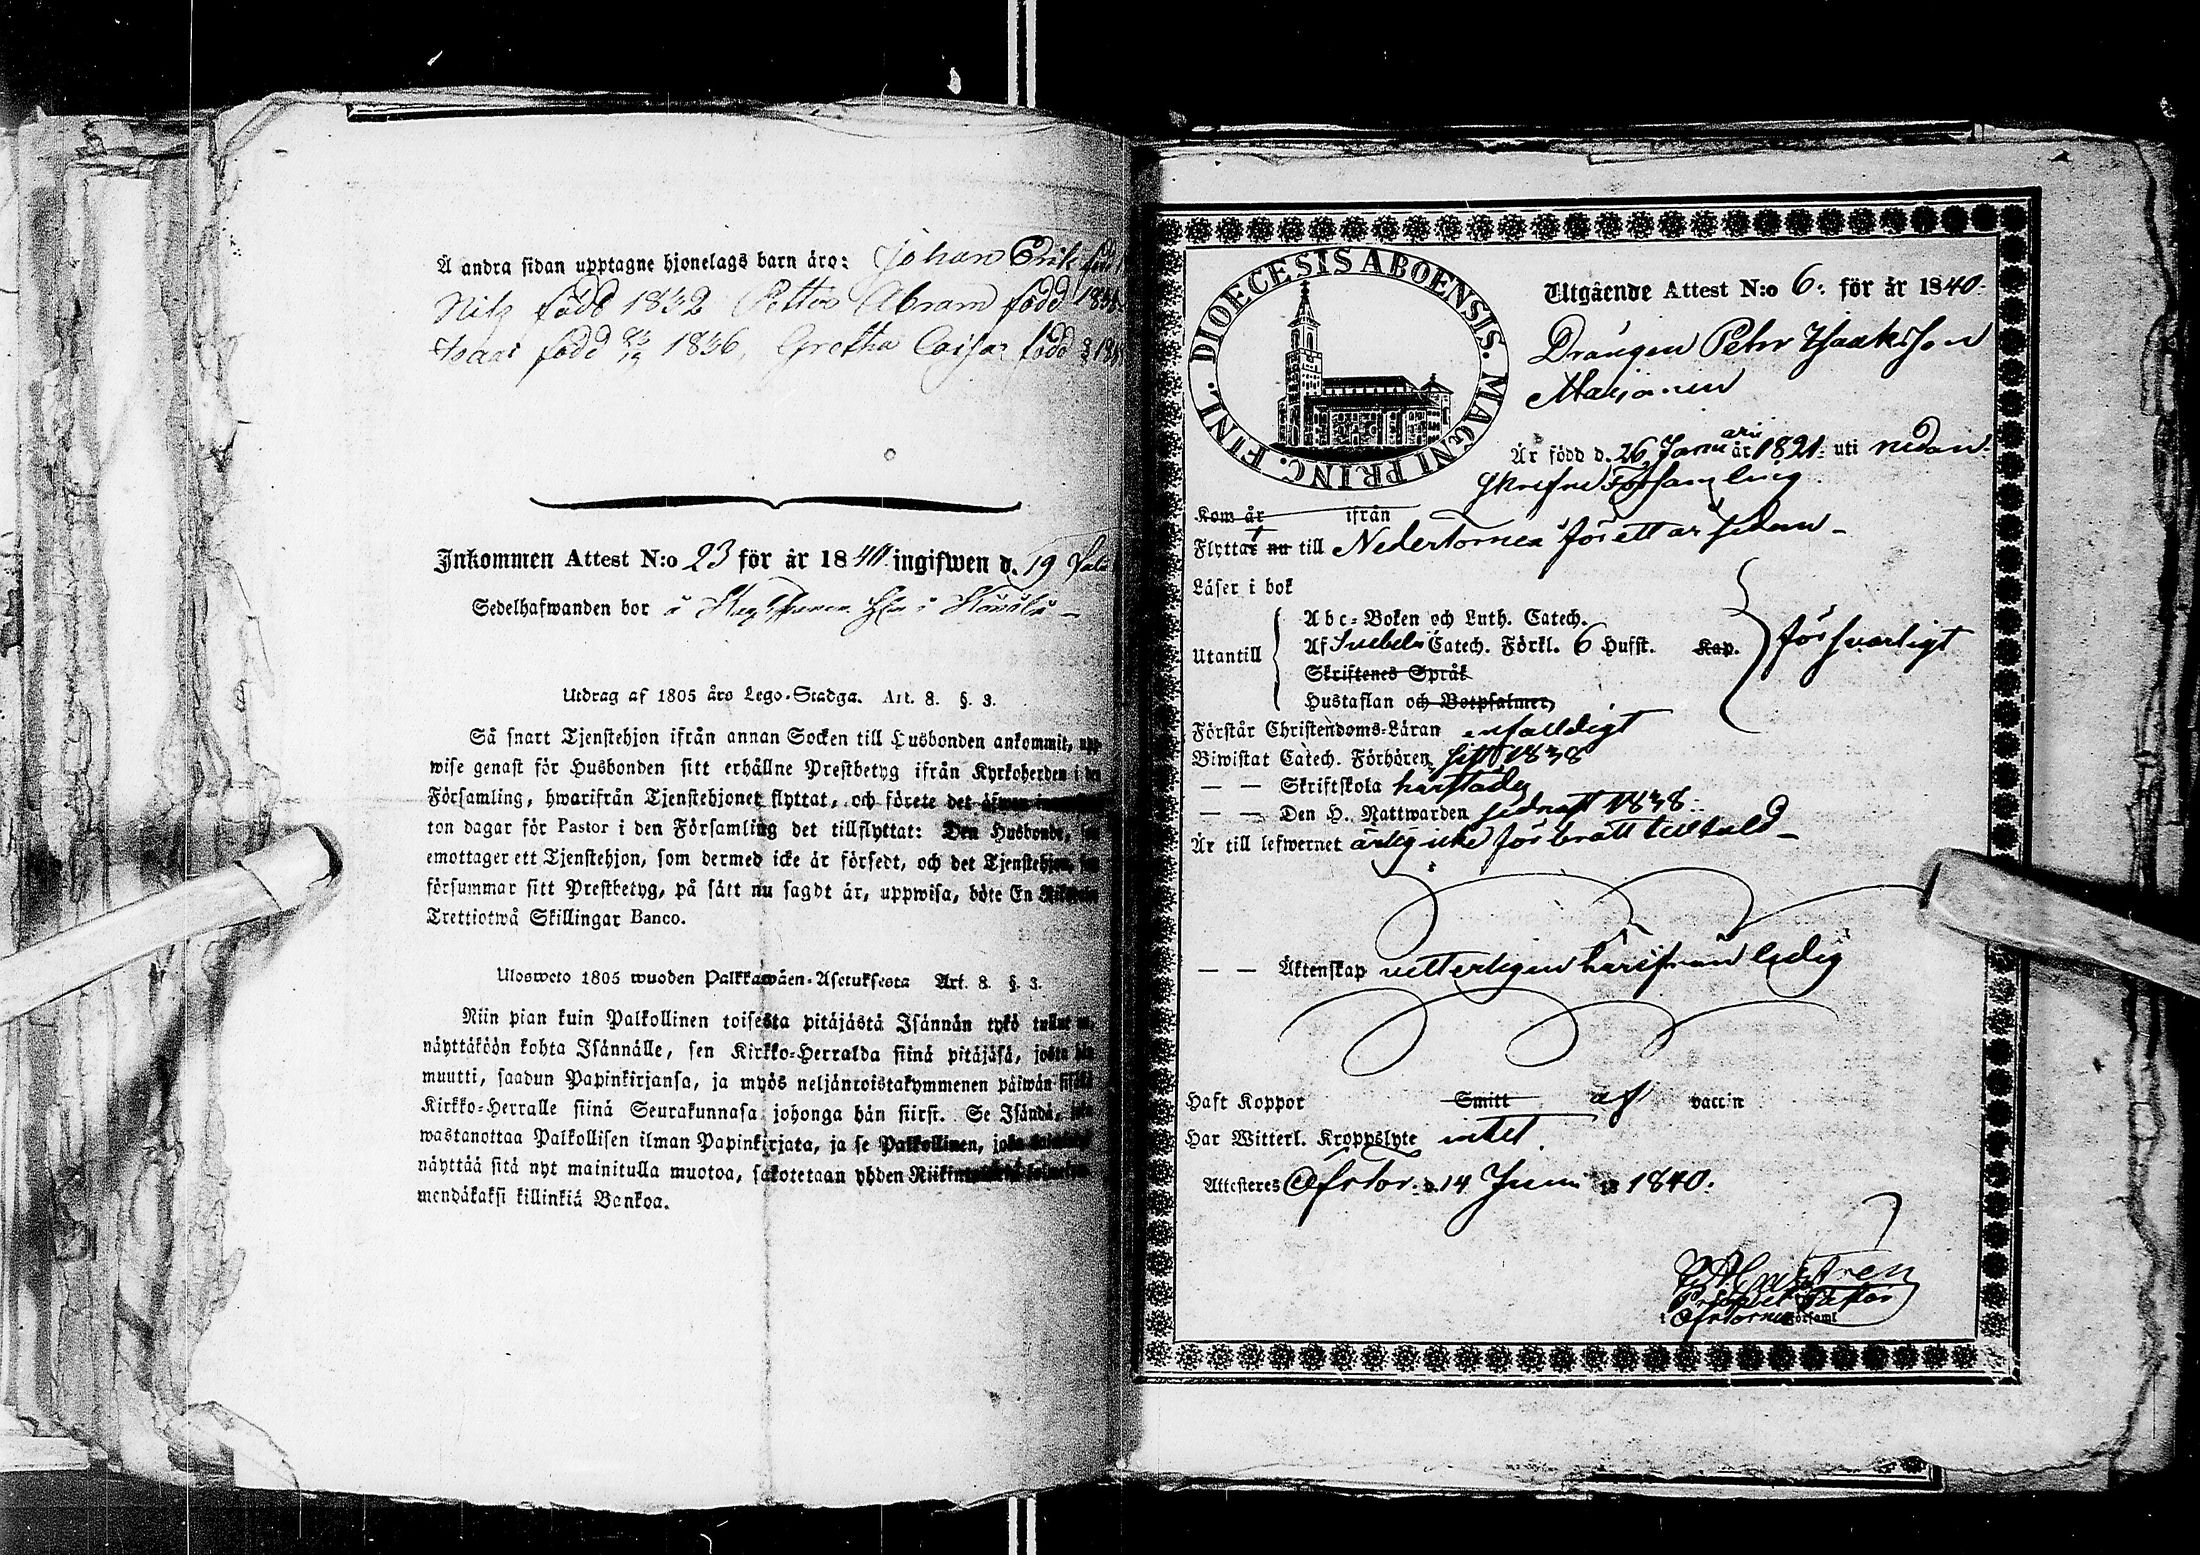 Å andra sidan upptagne hjonelags barn äro: Johan Erik född
Nils född 1832 Petter Abram född
Isaac född 1836, Gretha Caisa född
Inkommen Attest N:o 23 för år 1840 ingifwen d. 19
Sedelhafwanden bor å
Utdrag af 1805 års Lego-Stadga. Art. 8. §. 3.
Så snart Tjenstehjon ifrån annan Socken till Husbonden ankommit, upp-
wise genast för Husbonden sitt erhållne Prestbetyg ifrån Kyrkoherden i den
Församling, hwarifrån Tjenstehjonet flyttat, och förete det äfwen
ton dagar för Pastor i den Församling det tillflyttat: Den Husbonde, som
emottager ett Tjenstehjon, som dermed icke är försedt, och det Tjenstehjon, som
försummar sitt Prestbetyg, på sätt nu sagdt är, uppwisa, böte En Riksdaler
Trettiotwå Skillingar Banco.
Ulosweto 1805 wuoden Palkkawäen-Asetuksesta Art. 8. §. 3.
Niin pian kuin Palkollinen toisesta pitäjästä Isännän tykö tullut on,
näyttäköön kohta Isännälle, sen Kirkko-Herralda siinä pitäjäsä, josta hän
muutti, saadun Papinkirjansa, ja myös neljäntoistakymmenen päiwän sisällä
Kirkko-Herralle siinä Seurakunnasa johonga hän siirst. Se Isändä, joka
wastanottaa Palkollisen ilman Papinkirjata, ja se Palkollinen, joka
näyttää sitä nyt mainitulla muotoa, sakotetaan yhden
mendäkaksi killinkiä Bankoa.
DIOECESIS ABOENSIS. MAGNI PRINC. FINL.
Utgående Attest N:o 6: för år 1840.
Drängen Petter Isaksson
Marjanen
Är född d. 26 Januarii år 1821. uti nedan-
skrefne Församling
Kom år ifrån
Flyttat nu till Nedertorneå för ett år sedan
Läser i bok
Abc-Boken och Luth. Catech.
Utantill Af Svebelii Catech. Förkl. 6 Hufst. Kap. försvarligt
Skriftenes Språk
Hustaflan och Botpsalmer,
Förstår Christendoms-Läran enfalldigt
Biwistat Catech. Förhören sist 1838
— — Skriftskola härstädes
— — Den H. Nattwarden sednast 1838.
Är till lefwernet ärlig icke för brott tilltald
— — Äktenskap vetterligen härifrån ledig
Haft Koppor Smitt af vaccin
Har Witterl. Kroppslyte intet.
Attesteras Öfvertor. d. 14 Juni 1840.
i Öfvertorneå Församl